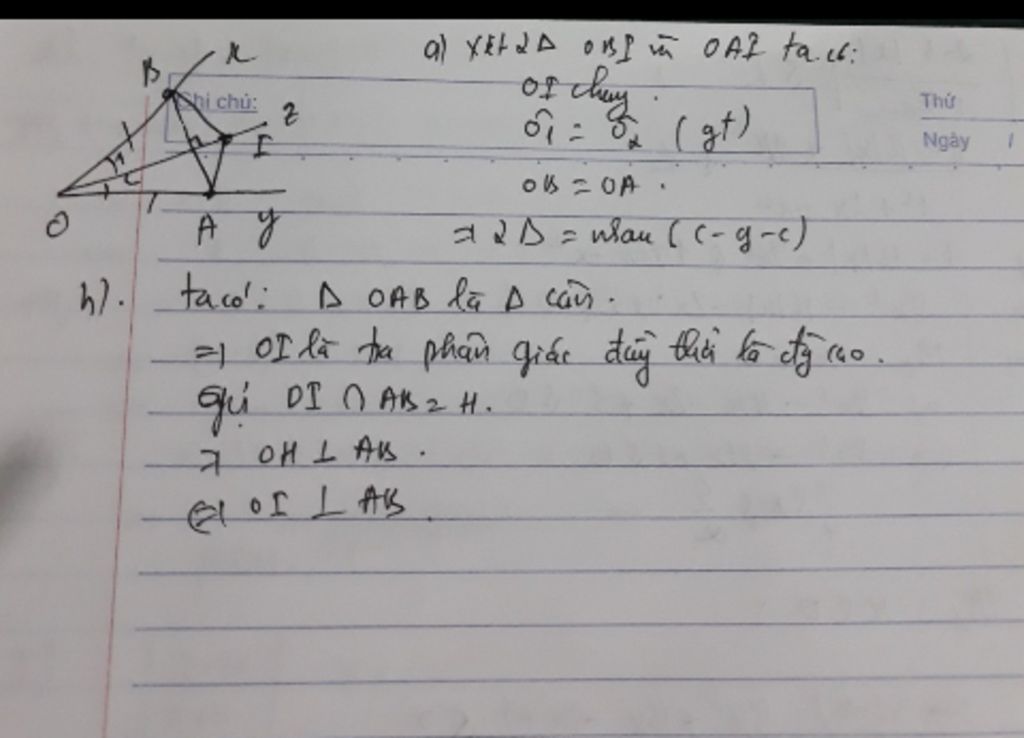 a) Xét 2Δ OBI và OAI ta có:
B x
Ghi chú:
OI chung.
Thứ
z
Ô1 = Ô2 (gt)
I
Ngày
OB = OA.
O A y
⇒ 2Δ = nhau (c-g-c)
b). ta có: Δ OAB là Δ cân.
⇒ OI là tia phân giác đồng thời là đg cao.
Gọi OI ∩ AB = H.
⇒ OH ⊥ AB.
⇔ OI ⊥ AB.